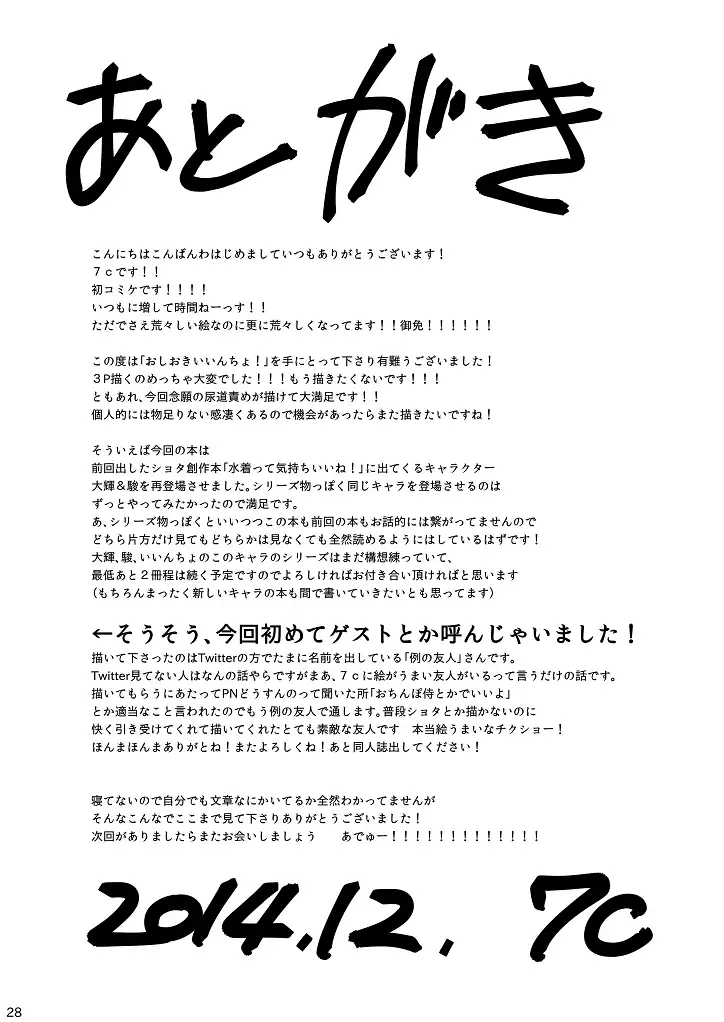 あとがき
こんにちはこんばんわはじめましていつもありがとうございます！
７ｃです！！
初コミケです！！！！
いつもに増して時間ねーっす！！
ただでさえ荒々しい絵なのに更に荒々しくなってます！！御免！！！！！！
この度は「おしおきいいんちょ！」を手にとって下さり有難うございました！
３P描くのめっちゃ大変でした！！！もう描きたくないです！！！
ともあれ、今回念願の尿道責めが描けて大満足です！！
個人的には物足りない感凄くあるので機会があったらまた描きたいですね！
そういえば今回の本は
前回出したショタ創作本「水着って気持ちいいね！」に出てくるキャラクター
大輝＆駿を再登場させました。シリーズ物っぽく同じキャラを登場させるのは
ずっとやってみたかったので満足です。
あ、シリーズ物っぽくといいつつこの本も前回の本もお話的には繋がってませんので
どちら片方だけ見てもどちらかは見なくても全然読めるようにはしているはずです！
大輝、駿、いいんちょのこのキャラのシリーズはまだ構想練っていて、
最低あと２冊程は続く予定ですのでよろしければお付き合い頂ければと思います
（もちろんまったく新しいキャラの本も間で書いていきたいとも思ってます）
←そうそう、今回初めてゲストとか呼んじゃいました！
描いて下さったのはTwitterの方でたまに名前を出している「例の友人」さんです。
Twitter見てない人はなんの話やらですがまあ、７ｃに絵がうまい友人がいるって言うだけの話です。
描いてもらうにあたってPNどうすんのって聞いた所「おちんぽ侍とかでいいよ」
とか適当なこと言われたのでもう例の友人で通します。普段ショタとか描かないのに
快く引き受けてくれて描いてくれたとても素敵な友人です　本当絵うまいなチクショー！
ほんまほんまありがとね！またよろしくね！あと同人誌出してください！
寝てないので自分でも文章なにかいてるか全然わかってませんが
そんなこんなでここまで見て下さりありがとうございました！
次回がありましたらまたお会いしましょう　　あでゅー！！！！！！！！！！！！！
2014.12. 7c
28